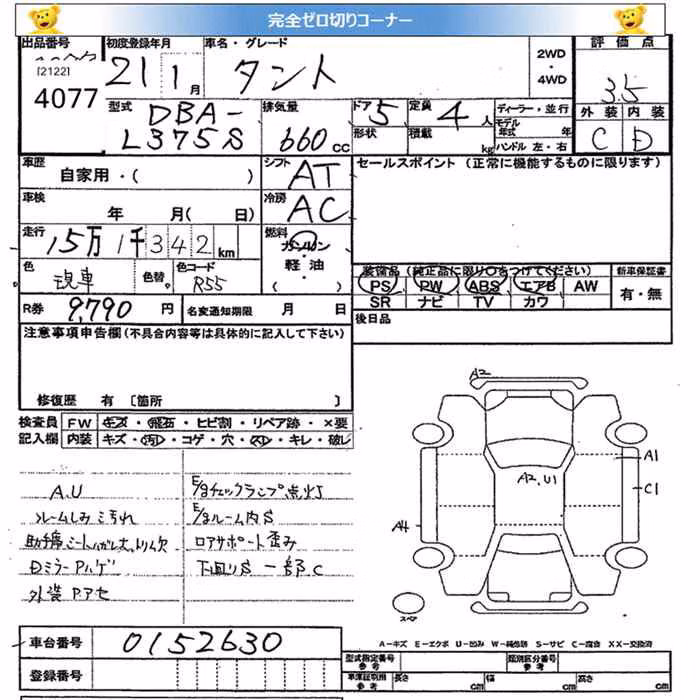 完全ゼロ切りコーナー
出品番号 初度登録年月 車名・グレード 評価点
[2122]
4077
21 1月 タント
2WD
・
4WD
3.5
型式 DBA-
L375S
排気量 660 cc
ドア 5 定員 4人
形状 積載 kg
ディーラー・並行
モデル年式 年
ハンドル 左・右
外装 内装
C D
車歴 自家用・( )
シフト AT
セールスポイント (正常に機能するものに限ります)
車検 年 月( 日)
冷房 AC
走行 15万1千342km
燃料 ガソリン
軽・油
( )
色 現車 色替 色コード R55
装備品 (純正品に限り○をつけてください) 新車保証書
PS PW ABS エアB AW 有・無
SR ナビ TV カワ
R券 9,790円 名変通知期限 月 日
後日品
注意事項申告欄(不具合内容等は具体的に記入して下さい)
修復歴 有 〔箇所
検査員 FW キズ・飛石・ヒビ割・リペア跡・×要
記入欄 内装 キズ・汚れ・コゲ・穴・スレ・キレ・破レ
A.U
ルームしみ汚れ
助手席シートハガレ大,トリム欠
Dミラー Pハゲ
外装 P.アセ
E/gチェックランプ点灯
E/gルーム内S
ロアサポート歪み
下回りS 一部C
A2
A2,U1
A1
C1
A4
スペア
A-キズ E-エクボ U-凹み W-補修跡 S-サビ C-腐食 XX-交換済
車台番号 0152630
登録番号
型式指定番号 参考 類別区分番号 参考
車庫証明用 参考 長さ cm 幅 cm 高さ cm